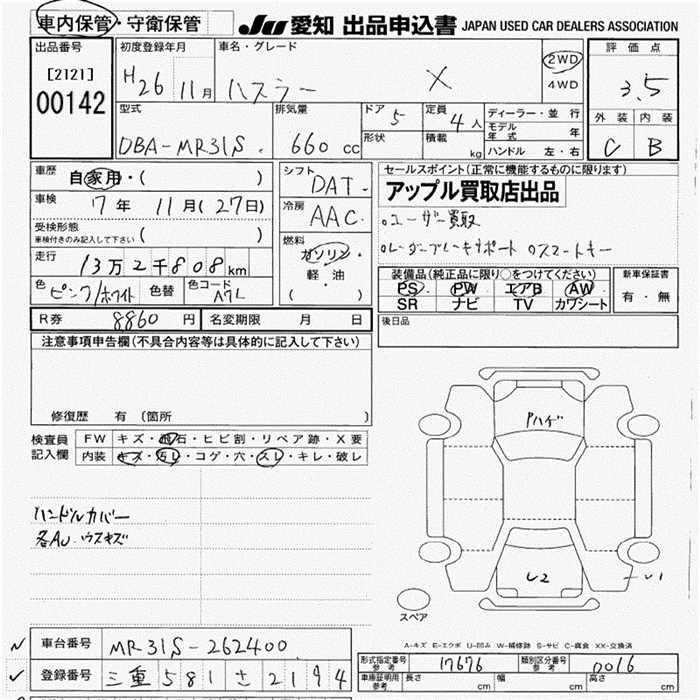 車内保管・守衛保管
JU 愛知 出品申込書 JAPAN USED CAR DEALERS ASSOCIATION
出品番号
[2121]
00142
初度登録年月
H26 11月
車名・グレード
ハスラー X
2WD
4WD
評価点
3.5
外装 内装
C B
型式
DBA-MR31S
排気量
660 cc
ドア 5
形状
定員 4人
積載 kg
ディーラー・並行
モデル年式 年
ハンドル 左・右
車歴 自家用・( )
車検 7年 11月(27日)
受検形態
車検付きのみ記入して下さい ( )
走行 13万2千808km
色 ピンク/ホワイト 色替 色コード A7L
シフト DAT
冷房 AAC
燃料
ガソリン・
軽油
( )
セールスポイント(正常に機能するものに限ります)
アップル買取店出品
○ユーザー買取
○レーダーブレーキサポート ○スマートキー
装備品(純正品に限り○をつけてください)
PS PW エアB AW
SR ナビ TV カワシート
新車保証書
有・無
R券 8860円 名変期限 月 日
後日品
注意事項申告欄(不具合内容等は具体的に記入して下さい)
修復歴 有(箇所 )
検査員
記入欄
FW キズ・飛石・ヒビ割・リペア跡・X要
内装 キズ・汚レ・コゲ・穴・スレ・キレ・破レ
ハンドルカバー
各AW ウスキズ
Pハゲ
レ2
レ1
スペア
A-キズ E-エクボ U-凹み W-補修跡 S-サビ C-腐食 XX-交換済
車台番号 MR31S-262400
登録番号 三重581さ2194
形式指定番号
参考
17676
類別区分番号
参考
0016
車庫証明用
参考
長さ cm 幅 cm 高さ cm